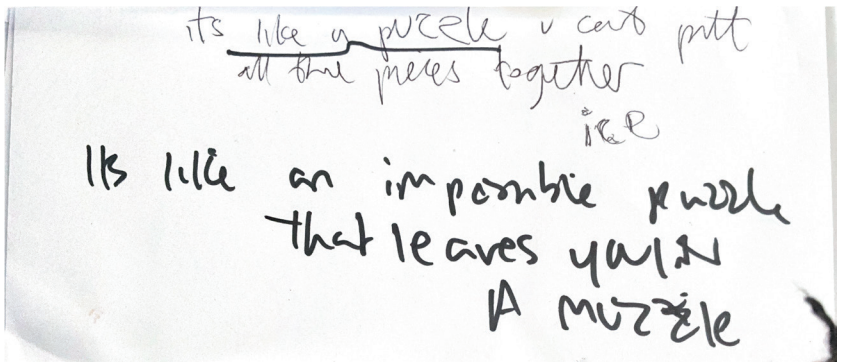 its like a puzzle u cant putt
all the pieces together
ice
Its like an impossible puzzle
that leaves you in
A muzzle